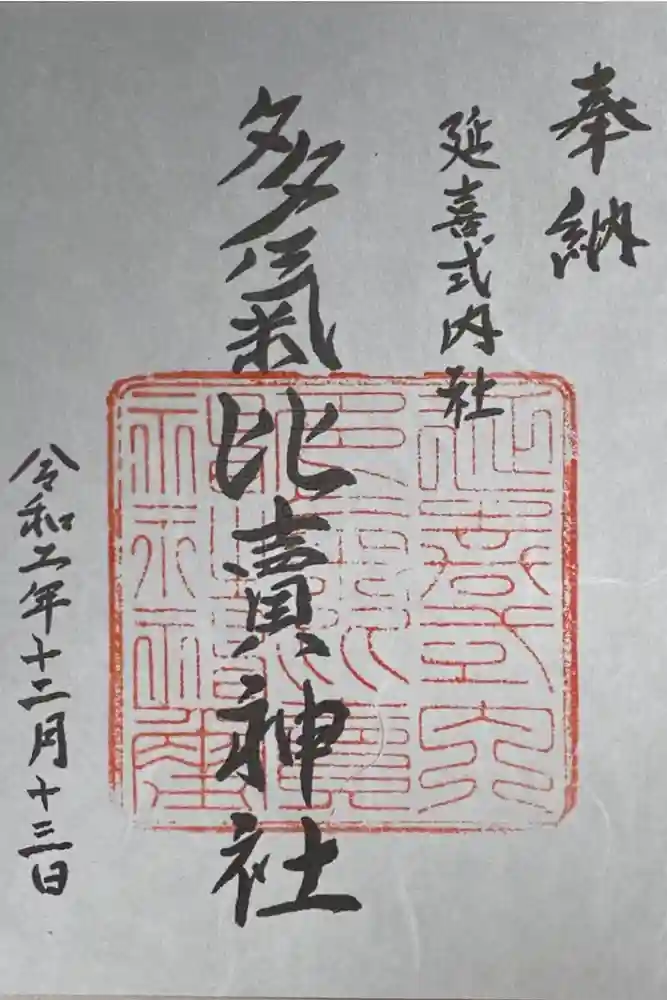 奉納
延喜式内社
多氣比賣神社
令和二年十二月十三日